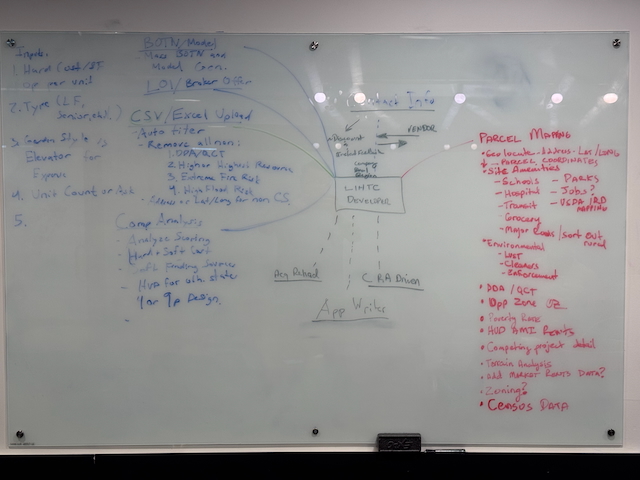 Inputs.
1. Hard Cost/SF
Op per unit
2. Type (LF,
Senior, etc.)
3. Garden Style vs
Elevator for
4. Unit Count or
5.
BOTN/Model
Make BOTN
Model Gen.
LOI/Broker Offer
CSV/Excel Upload
Auto filter
- Remove all non:
1. DDA/QCT
2. Higher Highest Resource
3. Extreme Fire Risk
4. High Flood Risk
Address or Lat/Long for non CS.
Comp Analysis
- Analyze Scoring
- Hard + Soft Cost
- Soft Funding Sources
- HUD for oth. state
4 or 9p Design.
Info
VENDOR
LIHTC
Developer
CRA Driven
App Writer
PARCEL MAPPING
• Geo locate - Address - Lat/Long
+ - PARCEL COORDINATES
• Site Amenities
- Schools - PARKS
- Hospital - Jobs?
- Transit - USDA /RD
MAPPING
- Grocery
- Major Roads /sort out
rural
• Environmental
- LUST
- Cleaners
- Enforcement
• DDA/QCT
• Opp Zone
• Poverty Rate
• HUD AMI Rents
• Competing project detail
• Terrain Analysis
• Add MARKET RENTS DATA?
• Zoning?
• CENSUS DATA